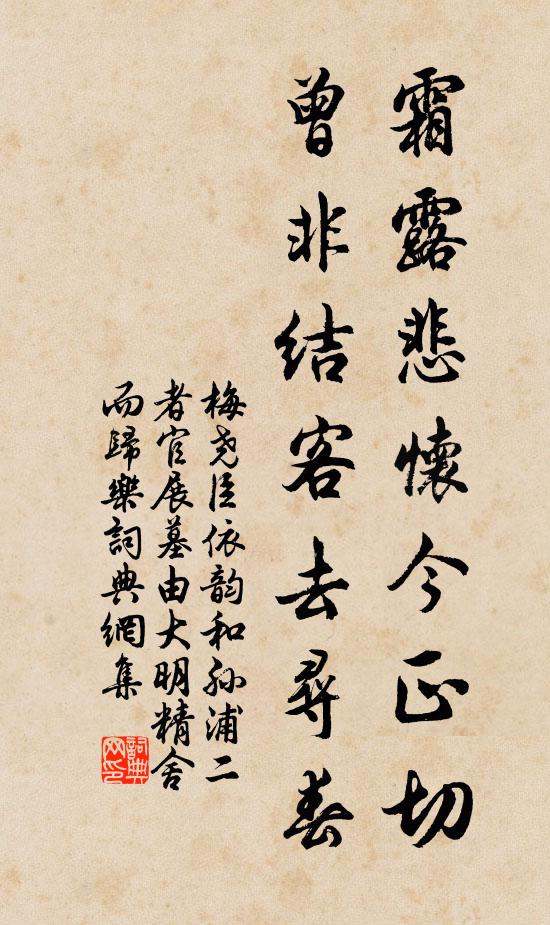 霜露悲懷今正切
曾非結客去尋春
梅尧臣依韵和孙浦二
者官展墓由大明精舍
而歸樂詞典網集
詞典
网印